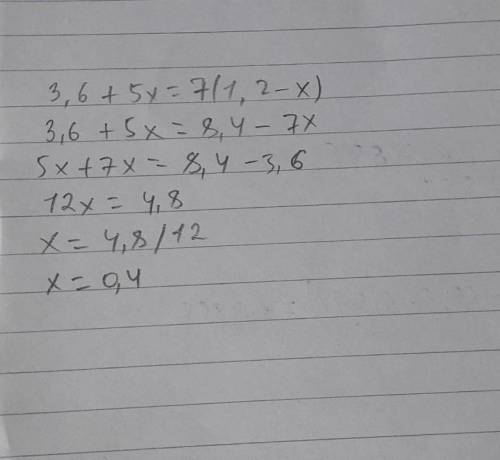 3,6 + 5x = 7(1,2 - x)
3,6 + 5x = 8,4 - 7x
5x + 7x = 8,4 - 3,6
12x = 4,8
x = 4,8/12
x = 0,4